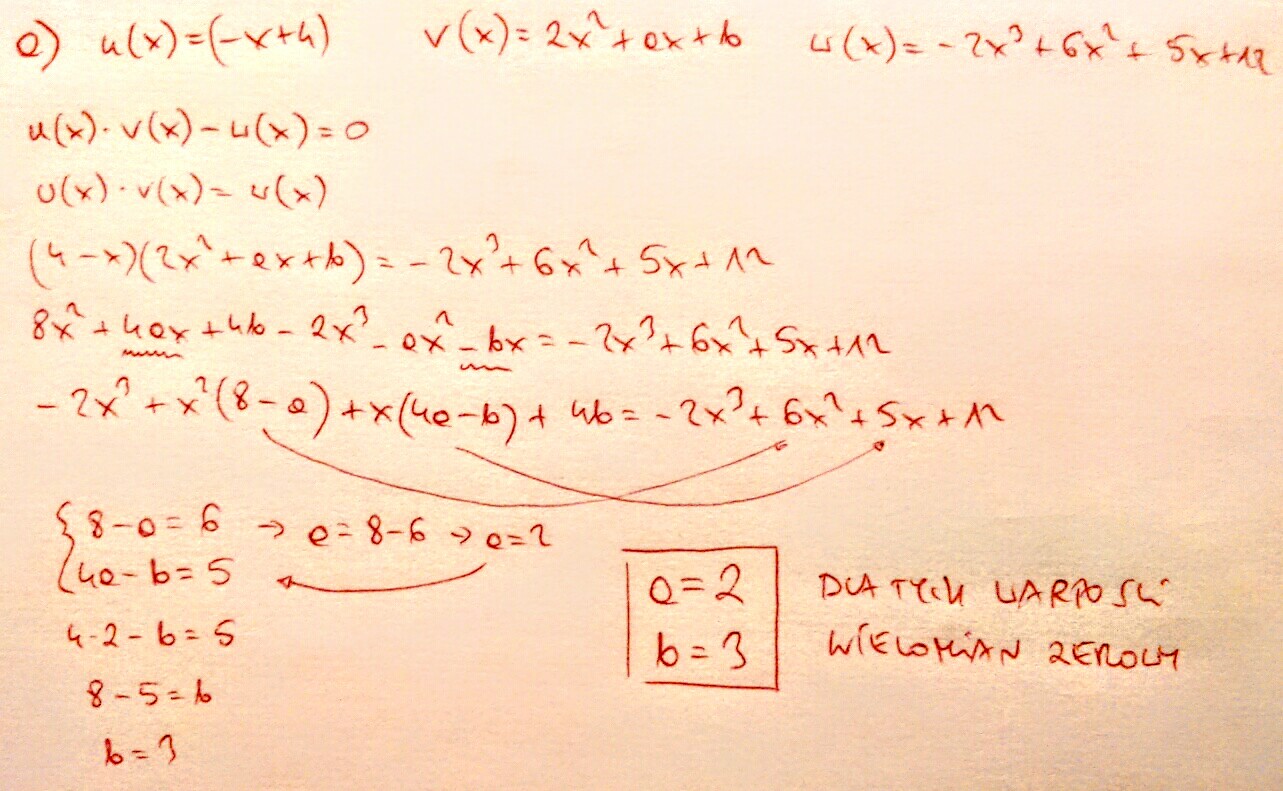 a) u(x)=(-x+4) v(x)=2x²+ax+b w(x)=-2x³+6x²+5x+12
u(x)·v(x)-w(x)=0
u(x)·v(x)=w(x)
(4-x)(2x²+ax+b)=-2x³+6x²+5x+12
8x²+4ax+4b-2x³-ax²-bx=-2x³+6x²+5x+12
-2x³+x²(8-a)+x(4a-b)+4b=-2x³+6x²+5x+12
{8-a=6 → a=8-6 → a=2
4a-b=5
4·2-b=5
8-5=b
b=3
a=2
b=3
DLA TYCH WARTOŚCI
WIELOMIAN ZEROWY